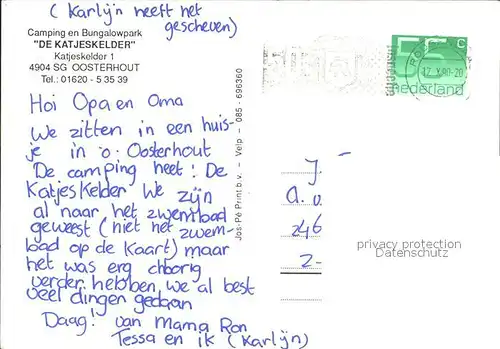 ( Karlijn heeft het
gescheven)
Camping en Bungalowpark
"DE KATJESKELDER"
Katjeskelder 1
4904 SG OOSTERHOUT
Tel.: 01620 - 5 35 39
55 c
nederland
Hoi Opa en Oma
We zitten in een huis-
je in o. Oosterhout
De camping heet: De
Katjeskelder We zijn
al naar het zwembad
geweest ( niet het zwem-
bad op de Kaart) maar
het was erg chlorig
verder hebben we al best
veel dingen gedaan
Daag! van Mama Ron
Tessa en ik (Karlijn)
Jos-Pé Print b.v. - Velp - 085 - 696360
J.
a. v.
246
2-
privacy protection
Datenschutz